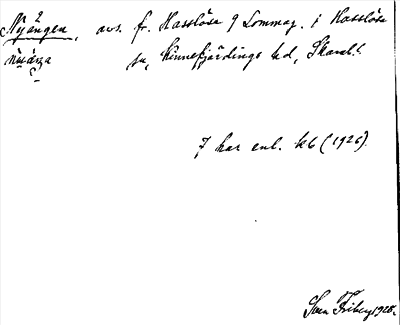 Nyången, avs. fr. Hasslösa 9 Lommag. i Hasslösa
sn, Kinnefjärdings hd, Skarab.l.
7 har enl. kb (1926).
Sven Friberg 1928.